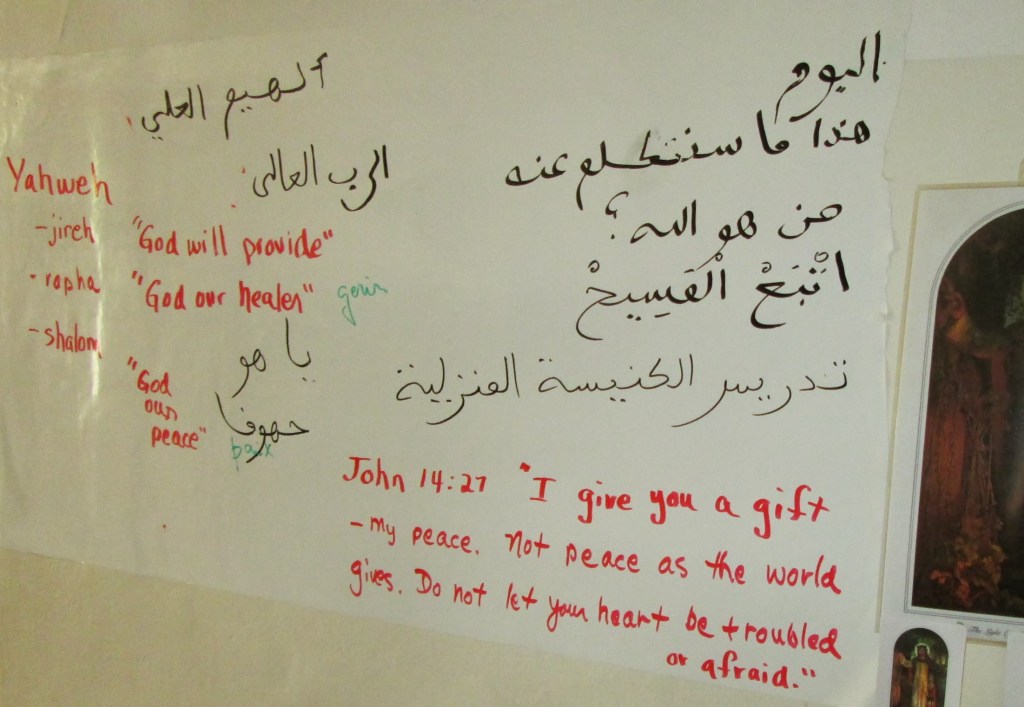 اليوم
هذا ما سنتكلم عنه
من هو الله؟
اتْبَعْ الْمَسِيحْ
تدريس الكنيسة المنزلية
ألهيم العلي
الرب العالى
Yahweh
-jireh "God will provide"
-rapha "God our healer" guerir
-shalom
"God
our
peace" paix
يا هو
John 14:27 "I give you a gift
-my peace. Not peace as the world
gives. Do not let your heart be troubled
or afraid."